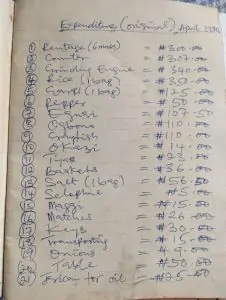 Expenditure (original) April
① Rentage (6mnths) = ₦300.00
② Counter = ₦307.00
③ Grinding Engine = ₦340.00
④ Rice (1bag) = ₦352.00
⑤ Garri (1bag) = ₦125.00
⑥ Pepper = ₦50.00
⑦ Egusi = ₦107.50
⑧ Ogbono = ₦110.00
⑨ Crayfish = ₦110.00
⑩ Okazi = ₦14.00
⑪ = ₦23.00
⑫ Baskets = ₦36.00
⑬ Salt (1bag) = ₦56.50
⑭ Selophine = ₦5.00
⑮ Maggi = ₦15.00
⑯ Matches = ₦26.00
⑰ Kegs = ₦30.00
⑱ Transporting = ₦15.00
⑲ Onions = ₦9.00
⑳ Table = ₦50.00
㉑ for oil = ₦25.00